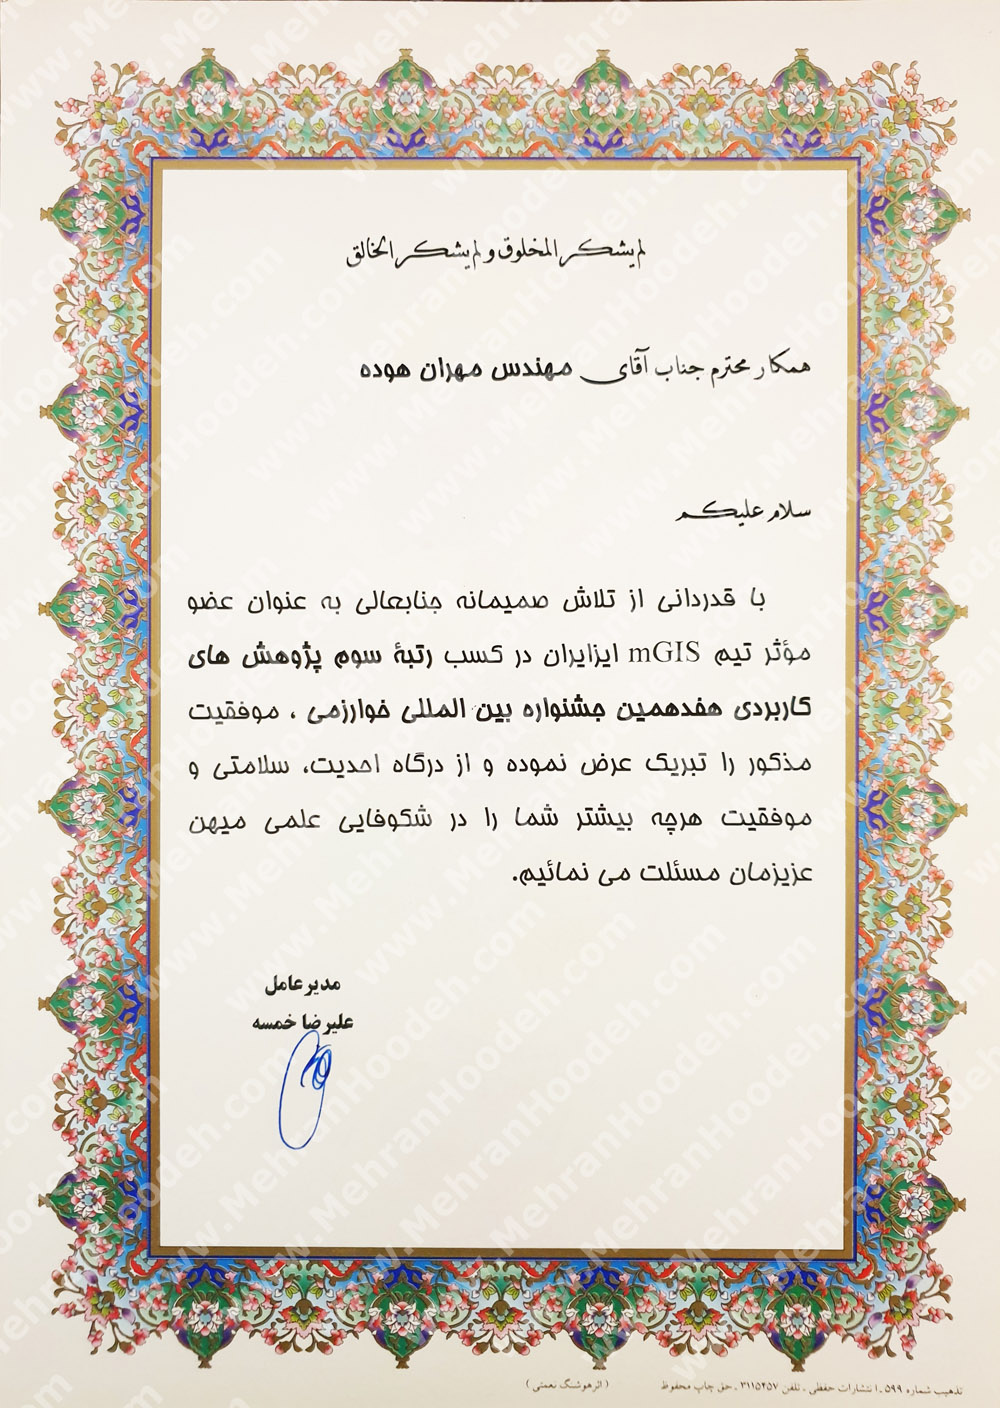 لم یشکر المخلوق و لم یشکر الخالق
همکار محترم جناب آقای مهندس مهران هوده
سلام علیکم
با قدردانی از تلاش صمیمانه جنابعالی به عنوان عضو
مؤثر تیم mGIS ایزایران در کسب رتبهٔ سوم پژوهش های
کاربردی هفدهمین جشنواره بین المللی خوارزمی ، موفقیت
مذکور را تبریک عرض نموده و از درگاه احدیت، سلامتی و
موفقیت هرچه بیشتر شما را در شکوفایی علمی میهن
عزیزمان مسئلت می نمائیم.
مدیر عامل
علیرضا خمسه
تذهیب شماره ۵۹۹ - انتشارات حفظی - تلفن ۳۱۱۵۲۵۷ - حق چاپ محفوظ (اثر هوشنگ نعمتی)
www.MehranHoodeh.com